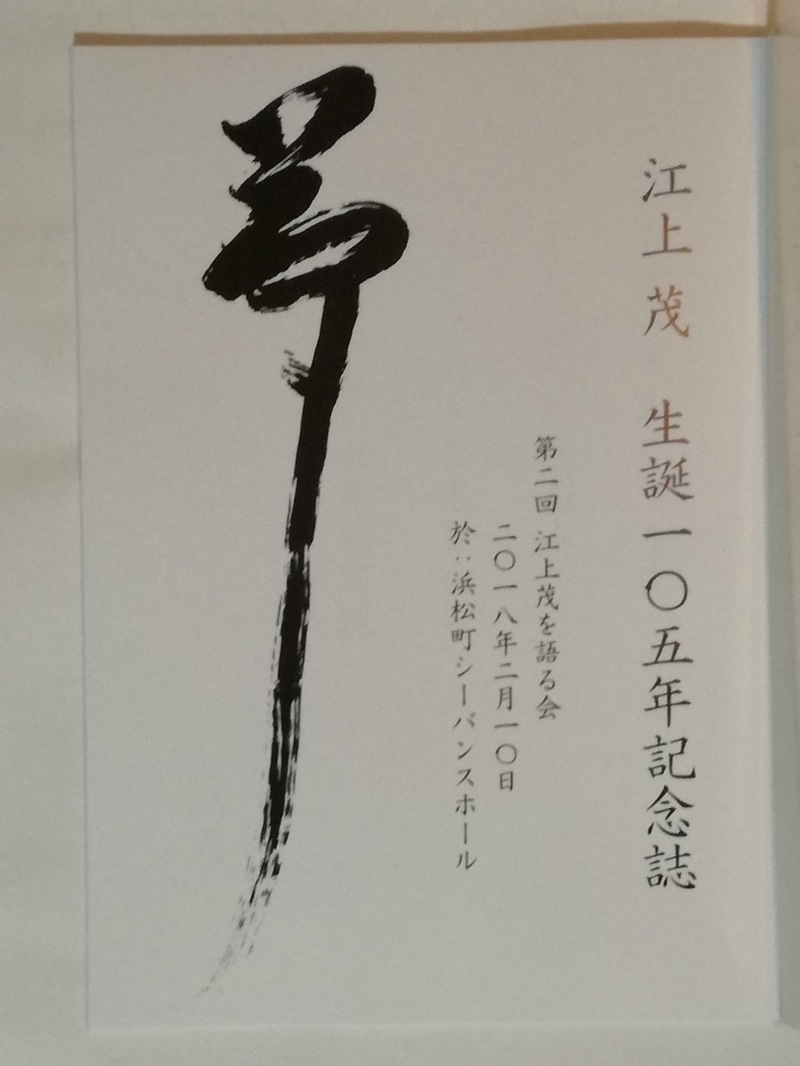 江上茂 生誕一〇五年記念誌
第二回 江上茂を語る会
二〇一八年二月一〇日
於:浜松町シーバンスホール